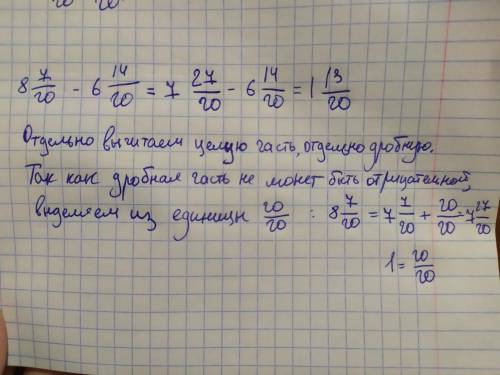 8 7/20 - 6 14/20 = 7 27/20 - 6 14/20 = 1 13/20
Отдельно вычитаем целую часть, отдельно дробную.
Так как дробная часть не может быть отрицательной,
выделяем из единицы 20/20 : 8 7/20 = 7 7/20 + 20/20 = 7 27/20
1 = 20/20